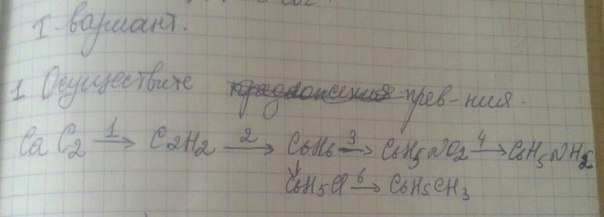 I вариант.
1 Осуществите прев-ния.
CaC2 1→ C2H2 2→ C6H6 3→ C6H5NO2 4→ C6H5NH2
↓
C6H5Cl 6→ C6H5CH3